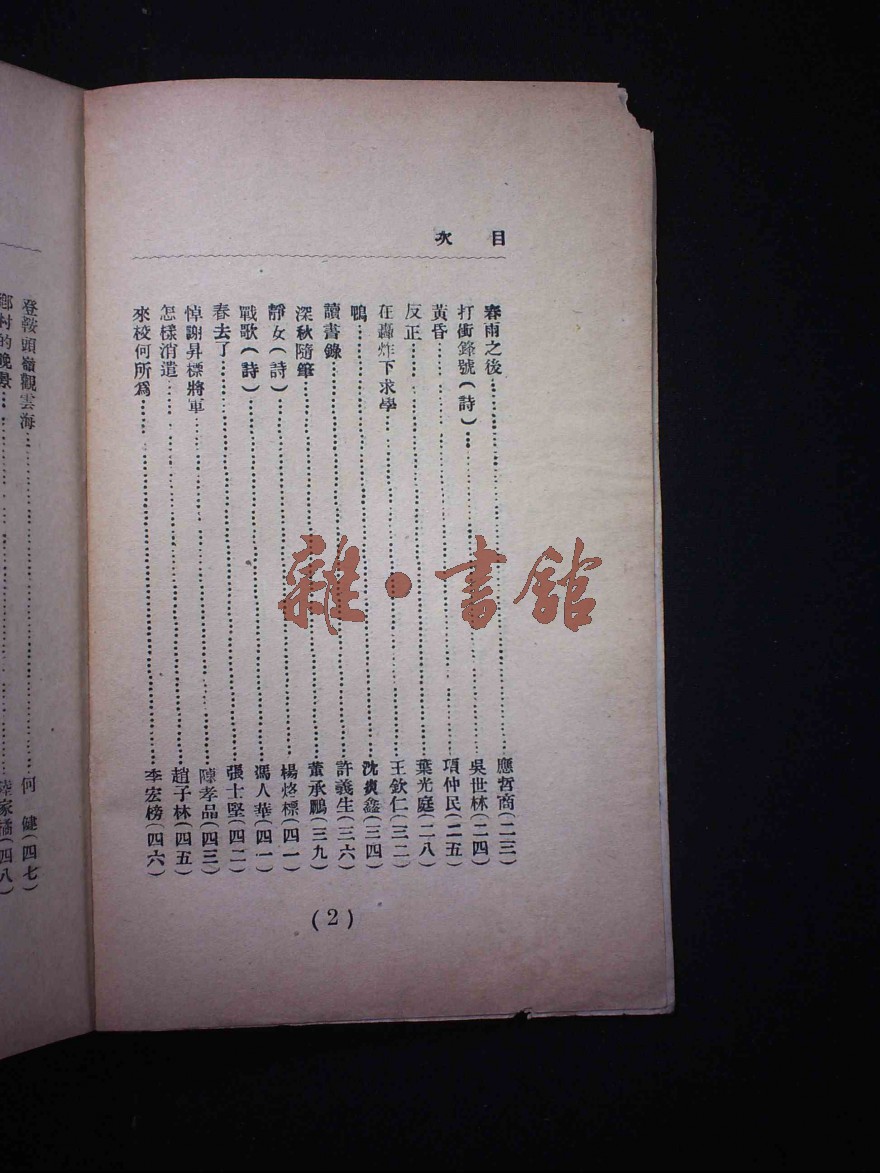 目次
春雨之後 應哲商(二三)
打衝鋒號(詩) 吳世林(二四)
黃昏 項仲民(二五)
反正 葉光庭(二八)
在轟炸下求學 王欽仁(三二)
鴨 沈 鑫(三四)
讀書錄 許義生(三六)
深秋隨筆 董承鵬(三九)
靜女(詩) 楊烙標(四一)
戰歌(詩) 馮人華(四一)
春去了 張士堅(四二)
悼謝昇標將軍 陳孝品(四三)
怎樣消遣 趙子林(四五)
來校何所爲 李宏榜(四六)
(2)
登鞍頭嶺觀雲海 何健(四七)
鄉村的晚景 陸家橘(四八)
雜·書館